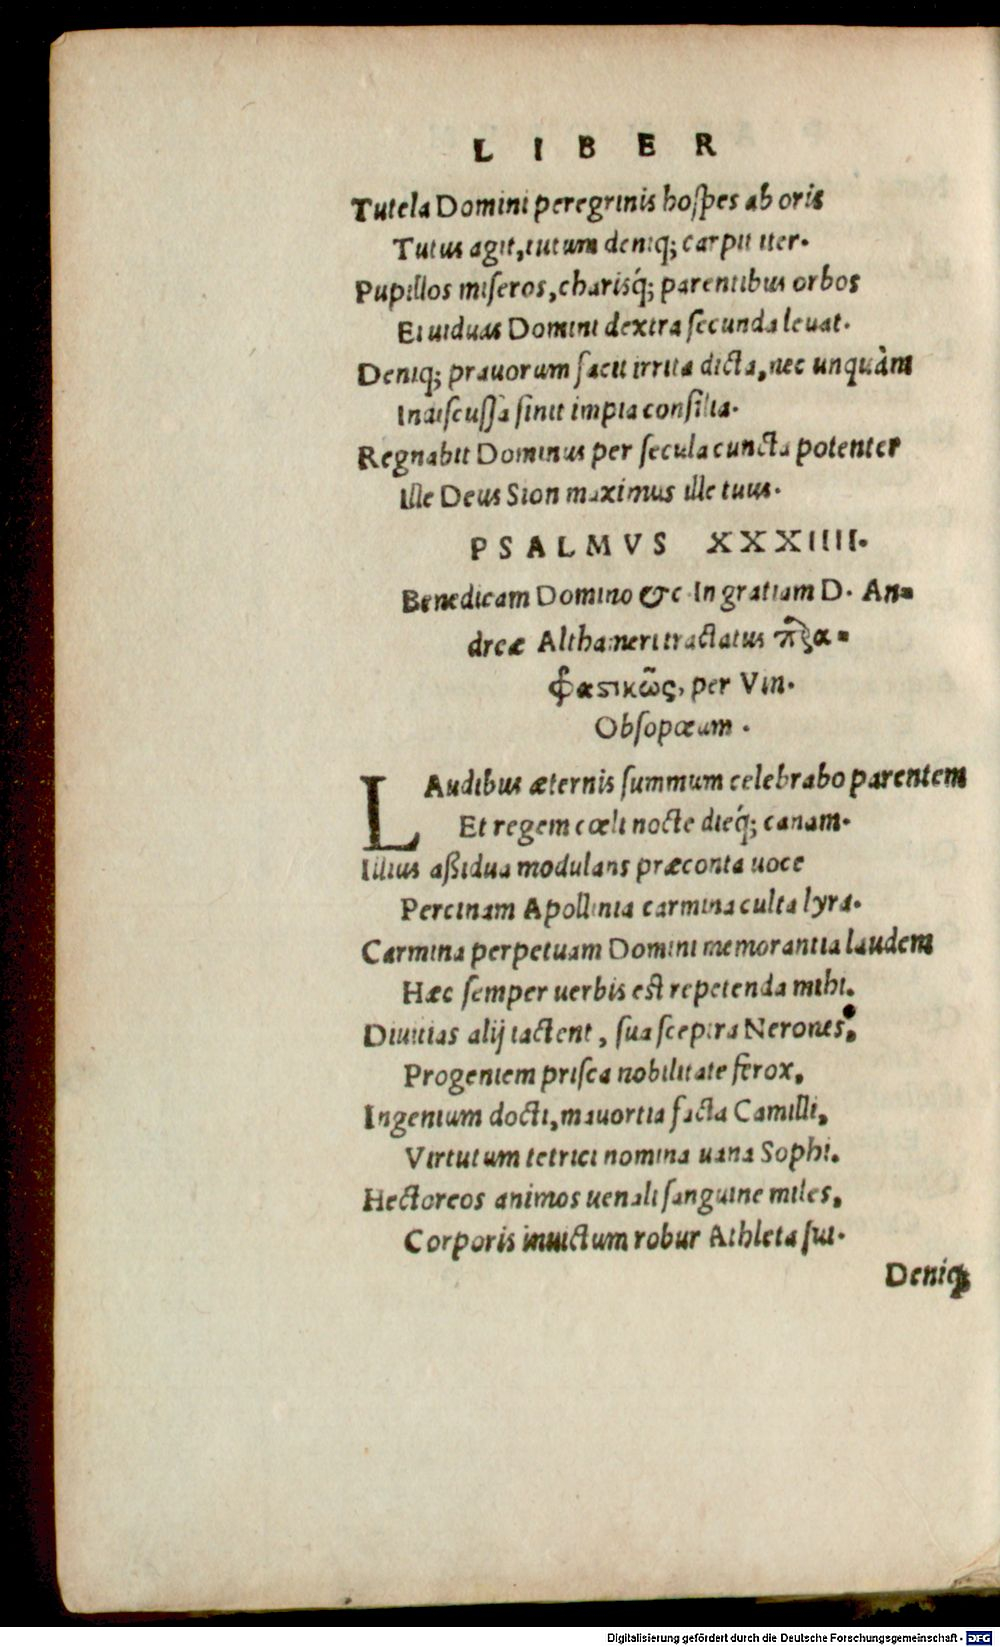 LIBER
Tutela Domini peregrinis hoſpes ab oris
Tutus agit, tutum deniq; carpit iter.
Pupillos miſeros, charisq́; parentibus orbos
Et uiduas Domini dextra ſecunda leuat.
Deniq; prauorum facit irrita dicta, nec unquàm
Indiſcuſſa ſinit impia conſilia.
Regnabit Dominus per ſecula cuncta potenter
Ille Deus Sion maximus ille tuus.
PSALMVS XXXIIII.
Benedicam Domino &c In gratiam D. An=
dreæ Althameri tractatus πρα=
φαστικῶς, per Vin.
Obſopœum.
LAudibus æternis ſummum celebrabo parentem
Et regem cœli nocte dieq́; canam.
Illius aßidua modulans præconia uoce
Percinam Apollinia carmina culta lyra.
Carmina perpetuam Domini memorantia laudem
Hæc ſemper uerbis eſt repetenda mihi.
Diuitias alij iactent, ſua ſceptra Nerones,
Progeniem priſca nobilitate ferox,
Ingenium docti, mauortia facta Camilli,
Virtutum tetrici nomina uana Sophi.
Hectoreos animos uenali ſanguine miles,
Corporis inuictum robur Athleta ſui.
Deniq;
Digitalisierung gefördert durch die Deutsche Forschungsgemeinschaft - DFG